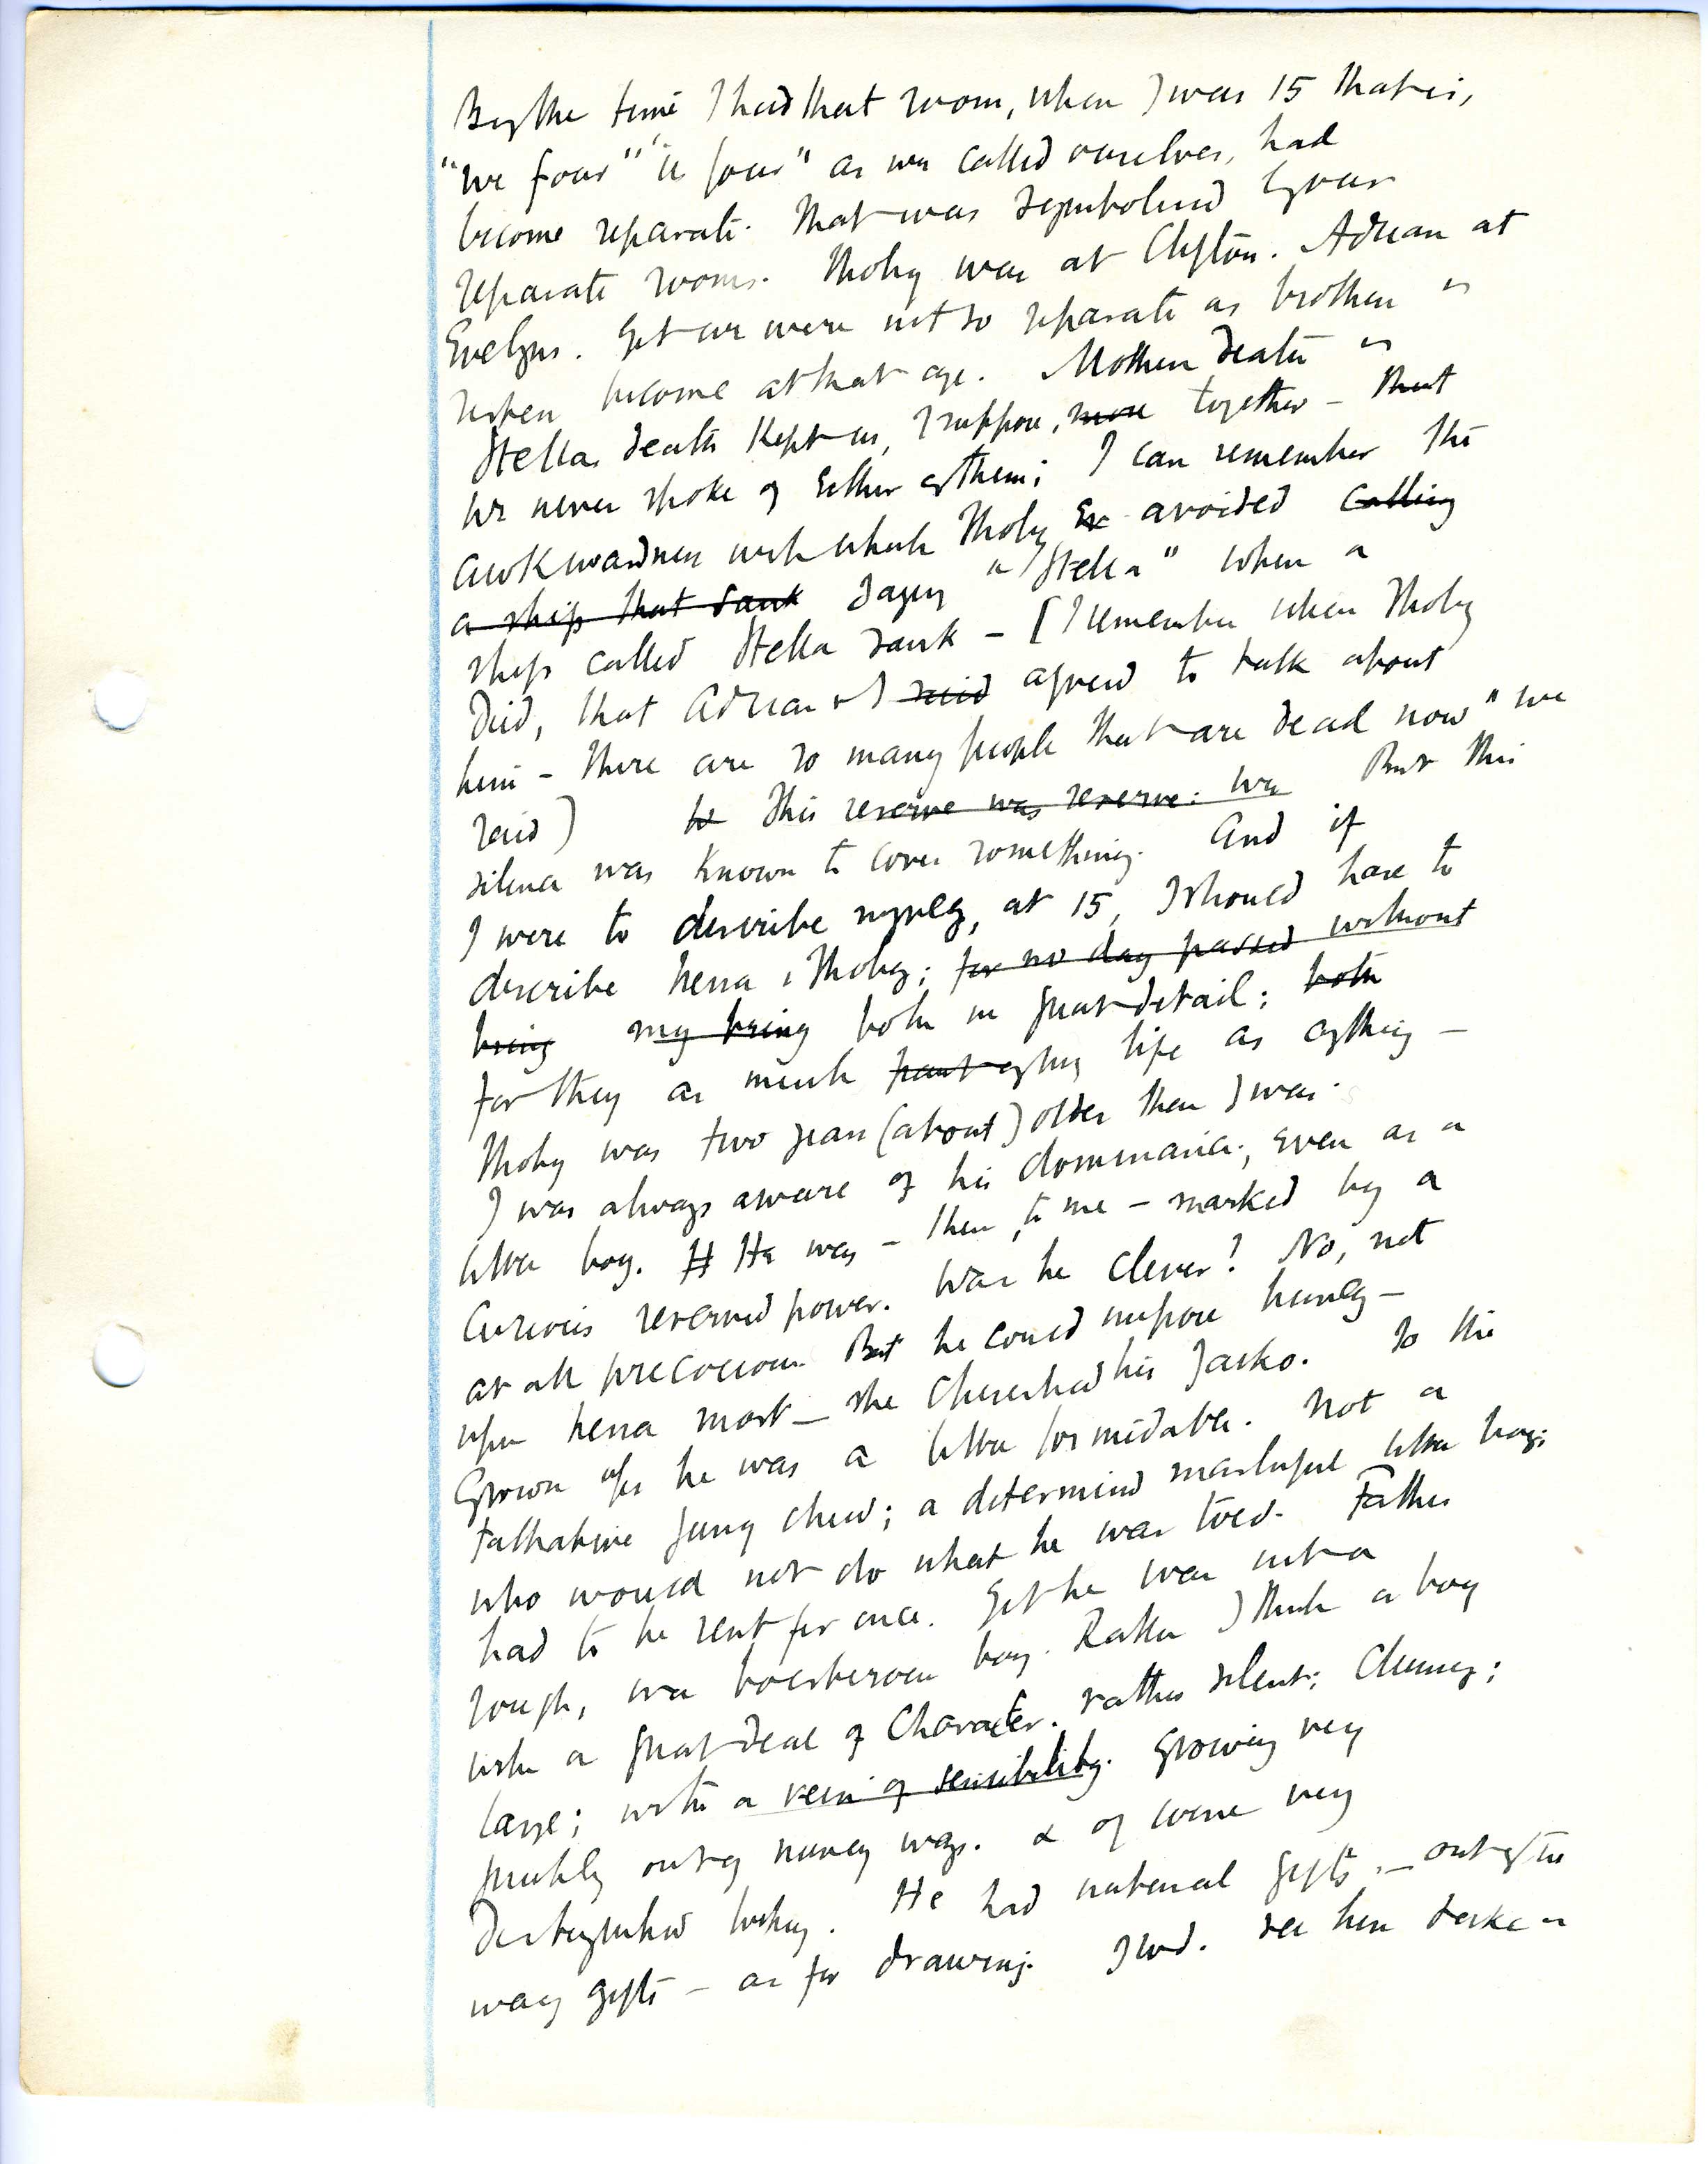 By the time I had that room, when I was 15 that is,
"we four" "us four" as we called ourselves, had
become separate. That was symbolised by our
separate rooms. Thoby was at Clifton. Adrian at
Evelyns. Yet we were not so separate as brothers &
sisters become at that age. Mothers death &
Stellas death kept us, I suppose, more together - that
we never spoke of either of them; I can remember the
awkwardness with which Thoby avoided calling
a ship that sank saying "Stella" when a
ship called Stella sank - [I remember when Thoby
died, that Adrian & I said agreed to talk about
him - there are so many people that are dead now" we
said) This reserve was reserve: we But this
silence was known to cover something. And if
I were to describe myself, at 15, I should have to
describe Nessa & Thoby; for no day passed without
being my being both in great detail; both
for they as much part of my life as anything -
Thoby was two years (about) older than I was.
I was always aware of his dominance; even as a
little boy. H He was - then, to me - marked by a
curious reserved power. Was he clever? No, not
at all precocious. But he could impose himself -
upon Nessa most - she cherished his Jacko. To the
grown ups he was a little formidable. Not a
talkative young child; a determined masterful little boy;
who would not do what he was told. Father
had to be sent for once. Yet he was not a
rough, or a boisterous boy. Rather I think a boy
with a great deal of character. rather silent; clumsy;
large; with a vein of sensibility. growing very
quickly out of nursery ways. & of course very
distinguished looking. He had natural gifts. - out of the
way gifts - as for drawing. I wd. see him take a